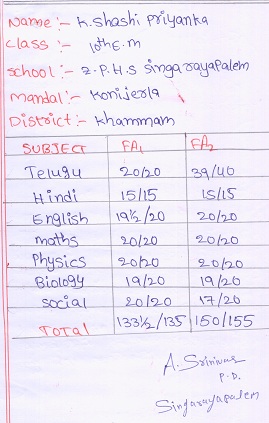 Name:- K.Shashi Priyanka
Class :- 10th E.m
School :- Z.P.H.S Singarayapalem
Mandal :- Konijerla
District :- Khammam
SUBJECT FA1 FA2
Telugu 20/20 39/40
Hindi 15/15 15/15
English 19½/20 20/20
maths 20/20 20/20
Physics 20/20 20/20
Biology 19/20 19/20
Social 20/20 17/20
TOTAL 133½/135 150/155
A. Srinivas
P.D.
Singarayapalem